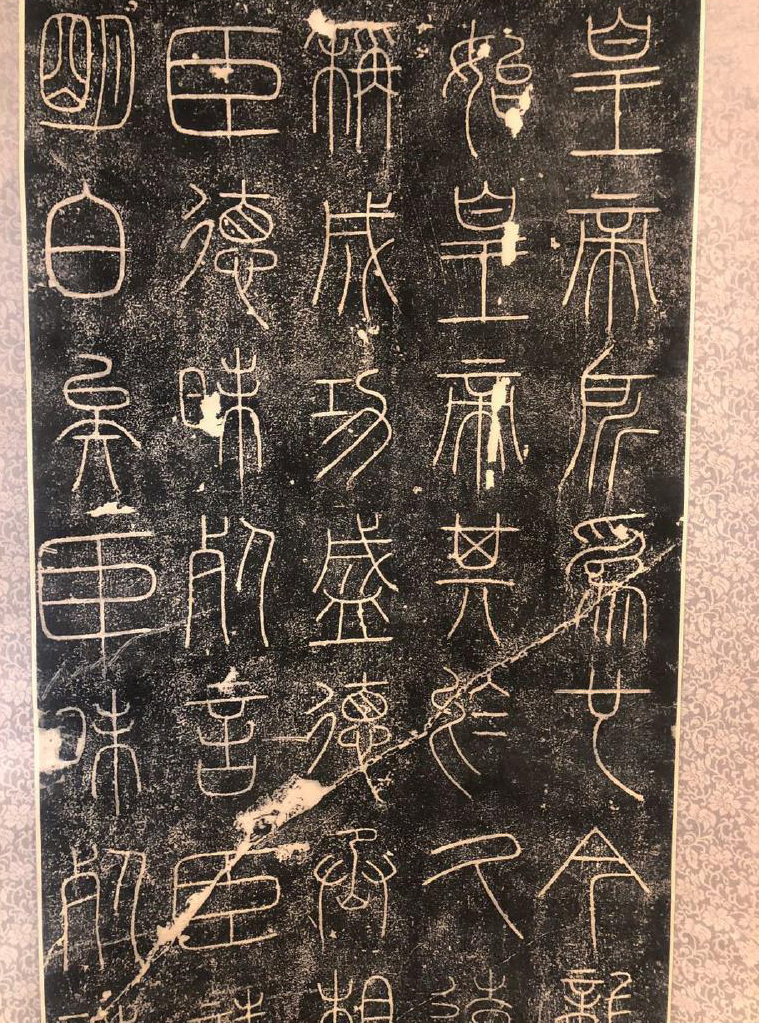 皇帝所爲也今襲
始皇帝其於久遠
稱成功盛德丞相
臣德昧死言臣請
明白矣臣昧死請